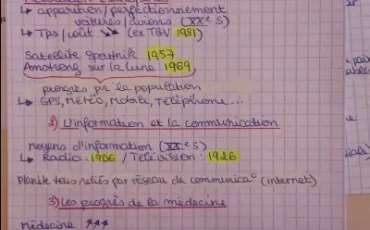 ↳ apparition/perfectionnement
voitures/avions (XXe S)
↳ Tps/coût ↘ (ex TGV 1981)
Satellite Spoutnik 1957
Amstrong sur la Lune 1969
progrès pr la population
↳ GPS, Météo, Mobile, Téléphone...
2) L'information et la communication
Moyens d'information (XXe S)
↳ Radio : 1906 / Télévision : 1926
Planète tous reliés par réseau de communica° (internet)
3) Les progrès de la médecine
Médecine